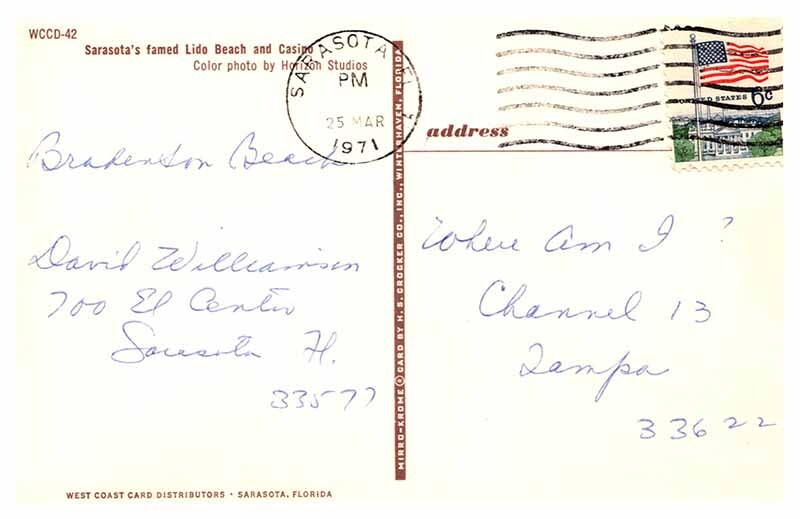 WCCD-42
Sarasota's famed Lido Beach and Casino
Color photo by Horizon Studios
SARASOTA FL
PM
25 MAR
1971
UNITED STATES 6c
address
Bradenton Beach
David Williamson
700 El Centro
Sarasota Fl.
33577
Where Am I ?
Channel 13
Tampa
33622
MIRRO-KROME ® CARD BY H. S. CROCKER CO., INC., WINTER HAVEN, FLORIDA
WEST COAST CARD DISTRIBUTORS · SARASOTA, FLORIDA